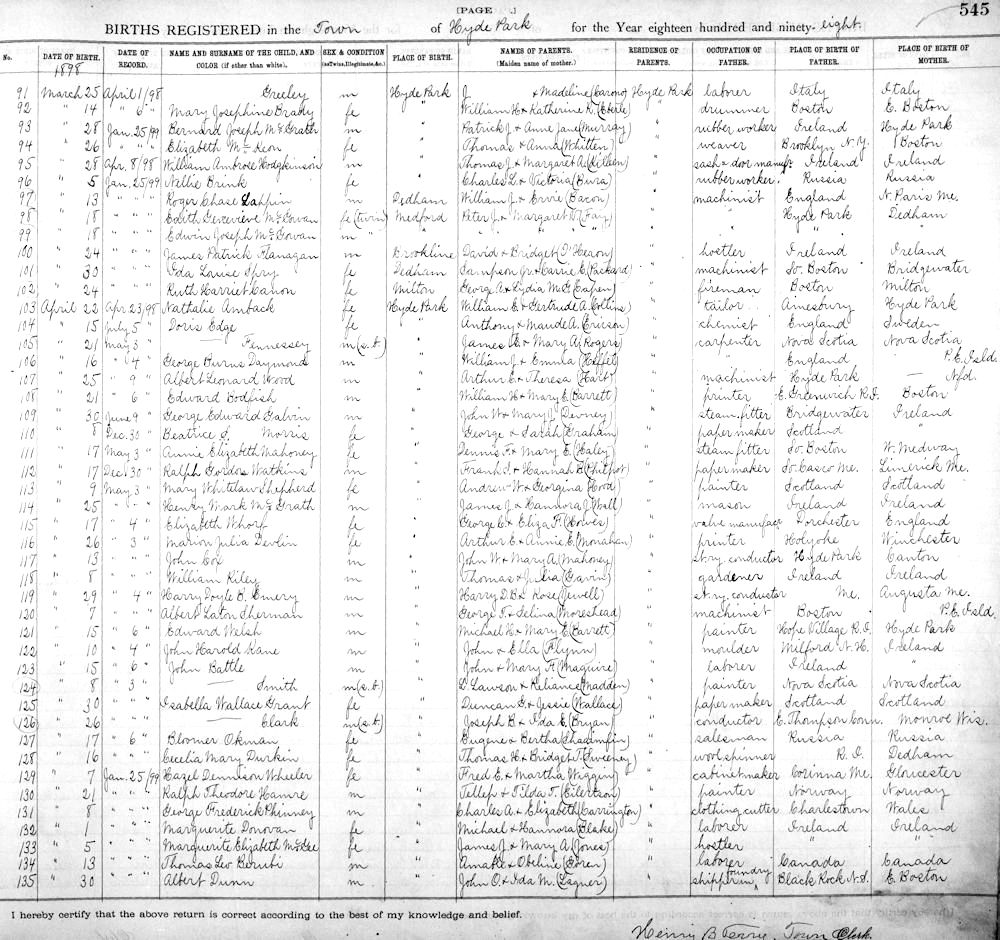 [PAGE ..]
545
BIRTHS REGISTERED in the Town of Hyde Park for the Year eighteen hundred and ninety-eight.
No. DATE OF BIRTH. DATE OF RECORD. NAME AND SURNAME OF THE CHILD, AND COLOR (if other than white). SEX & CONDITION (as Twins, Illegitimate, &c.) PLACE OF BIRTH. NAMES OF PARENTS. (Maiden name of mother.) RESIDENCE OF PARENTS. OCCUPATION OF FATHER. PLACE OF BIRTH OF FATHER. PLACE OF BIRTH OF MOTHER.
1898
91 March 25 April 1/98 Greeley m Hyde Park J. & Madeline (Carono) Hyde Park laborer Italy Italy
92 " 14 " 6 " Mary Josephine Brady fe " William H & Katherine R. (Eberle) " drummer Boston E. Boston
93 " 28 Jan. 25/99 Bernard Joseph McGrath m " Patrick J. & Anne Jane (Murray) " rubber worker Ireland Hyde Park
94 " 26 " " " Elizabeth McKeon fe " Thomas & Anna (Whitten) " weaver Brooklyn N.Y. Boston
95 " 28 Apr. 8/98 William Ambrose Hodgkinson m " Thomas J. & Margaret A. (Killeen) " sash & dor manuf. Ireland Ireland
96 " 5 Jan. 25/99 Nellie Brink fe " Charles L. & Victoria (Bura) " rubber worker Russia Russia
97 " 13 " " " Roger Chase Lappin m Dedham William J. & Ervie (Bacon) " machinist England N. Paris Me.
98 " 18 " " " Edith Genevieve McGowan fe (twin) Medford Peter J. & Margaret D. (Fay) " " Hyde Park Dedham
99 " 18 " " " Edwin Joseph McGowan m " " " " " " " " "
100 " 24 " " " James Patrick Flanagan m Brookline David & Bridget (O'Hearon) " hostler Ireland Ireland
101 " 30 " " " Ida Louise Spry fe Dedham Sampson Jr. & Carrie E. (Packard) " machinist So. Boston Bridgewater
102 " 24 " " " Ruth Harriet Canon fe Milton George A. & Lydia M. G. (Capen) " fireman Boston Milton
103 April 22 Apr. 23/98 Nathalie Amback fe Hyde Park William E. & Gertrude A. (Collins) " tailor Amesbury Hyde Park
104 " 15 July 5 " Doris Edge fe " Anthony & Maude A. (Ericson) " chemist England Sweden
105 " 21 May 3 — Fennessey m (s.b.) " James E. & Mary A. (Rogers) " carpenter Nova Scotia Nova Scotia
106 " 16 " 4 " George Burns Daymond m " William J. & Emma (Heffel) " England P.E. Isld.
107 " 25 " 9 " Albert Leonard Wood m " Arthur E. & Theresa (Hart) " machinist Hyde Park — Nfd.
108 " 21 " 6 " Edward Bodfish m " William H. & Mary E. (Barrett) " printer E. Greenwich R.I. Boston
109 " 30 June 9 " George Edward Galvin m " John W. & Mary J. (Devney) " steam fitter Bridgewater Ireland
110 " 8 Dec. 30 " Beatrice S. Morris fe " George & Sarah (Graham) " paper maker Scotland "
111 " 17 May 3 " Annie Elizabeth Mahoney fe " Dennis F. & Mary E. (Haley) " steam fitter So. Boston W. Medway
112 " 17 Dec. 30 " Ralph Gordon Watkins m " Frank S. & Hannah B. (Philpot) " paper maker So. Casco Me. Limerick Me.
113 " 9 May 3 " Mary Whitelaw Shepherd fe " Andrew W. & Georgina (Hood) " painter Scotland Scotland
114 " 25 " " " Henry Mark McGrath m " James J. & Hannora J. (Wall) " mason Ireland Ireland
115 " 17 " 4 " Elizabeth Whorf fe " George C. & Eliza F. (Howes) " valve manufac Dorchester England
116 " 26 " 3 " Marion Julia Devlin fe " Arthur E. & Annie E. (Monahan) " printer Holyoke Winchester
117 " 13 " " " John Cox m " John W. & Mary A. (Mahoney) " st. ry. conductor Hyde Park Canton
118 " 8 " " " William Riley m " Thomas & Julia (Gavin) " gardener Ireland Ireland
119 " 29 " 4 " Harry Doyle B. Emery m " Harry D. B. & Rose (Jewell) " st. ry. conductor Me. Augusta Me.
120 " 7 " " " Albert Laton Sherman m " George F. & Selina (Moreshead) " machinist Boston P.E. Isld.
121 " 15 " 6 " Edward Welsh m " Michael H. & Mary E. (Barrett) " painter Hope Village R.I. Hyde Park
122 " 10 " 4 " John Harold Kane m " John & Ella (Flynn) " moulder Milford N.H. Ireland
123 " 15 " 6 " John Battle m " John & Mary F. (Maguire) " laborer Ireland "
124 " 8 " 3 " — Smith m (s.b.) " L. Lawson & Reliance (Madden) " painter Nova Scotia Nova Scotia
125 " 30 " " " Isabella Wallace Grant fe " Duncan G. & Jessie (Wallace) " paper maker Scotland Scotland
126 " 26 " " " — Clark m (s.b.) " Joseph B. & Ida E. (Bryan) " conductor E. Thompson Conn. Monroe Wis.
127 " 17 " 6 " Bloomer Okman fe " Eugene & Bertha (Shadimfin) " salesman Russia Russia
128 " 16 " " " Cecelia Mary Durkin fe " Thomas H. & Bridget T. (Sweeney) " wool spinner R.I. Dedham
129 " 7 Jan. 25/99 Hazel Dennison Wheeler fe " Fred E. & Martha (Wiggin) " cabinet maker Corinna Me. Gloucester
130 " 21 " " " Ralph Theodore Hamre m " Tellef & Tilda T. (Eilertson) " painter Norway Norway
131 " 8 " " " George Frederick Phinney m " Charles A. & Elizabeth (Carrington) " clothing cutter Charlestown Wales
132 " 1 " " " Marguerite Donovan fe " Michael & Hannora (Blake) " laborer Ireland Ireland
133 " 5 " " " Marguerite Elizabeth McGee fe " James J. & Mary A. (Jones) " hostler " "
134 " 13 " " " Thomas Leo Berubi m " Amable & Obeline (Boren) " laborer Canada Canada
135 " 30 " " " Albert Dunn m " John O. & Ida M. (Lagner) " shipper in foundry Black Rock N.S. E. Boston
I hereby certify that the above return is correct according to the best of my knowledge and belief.
Henry B Terry, Town Clerk.